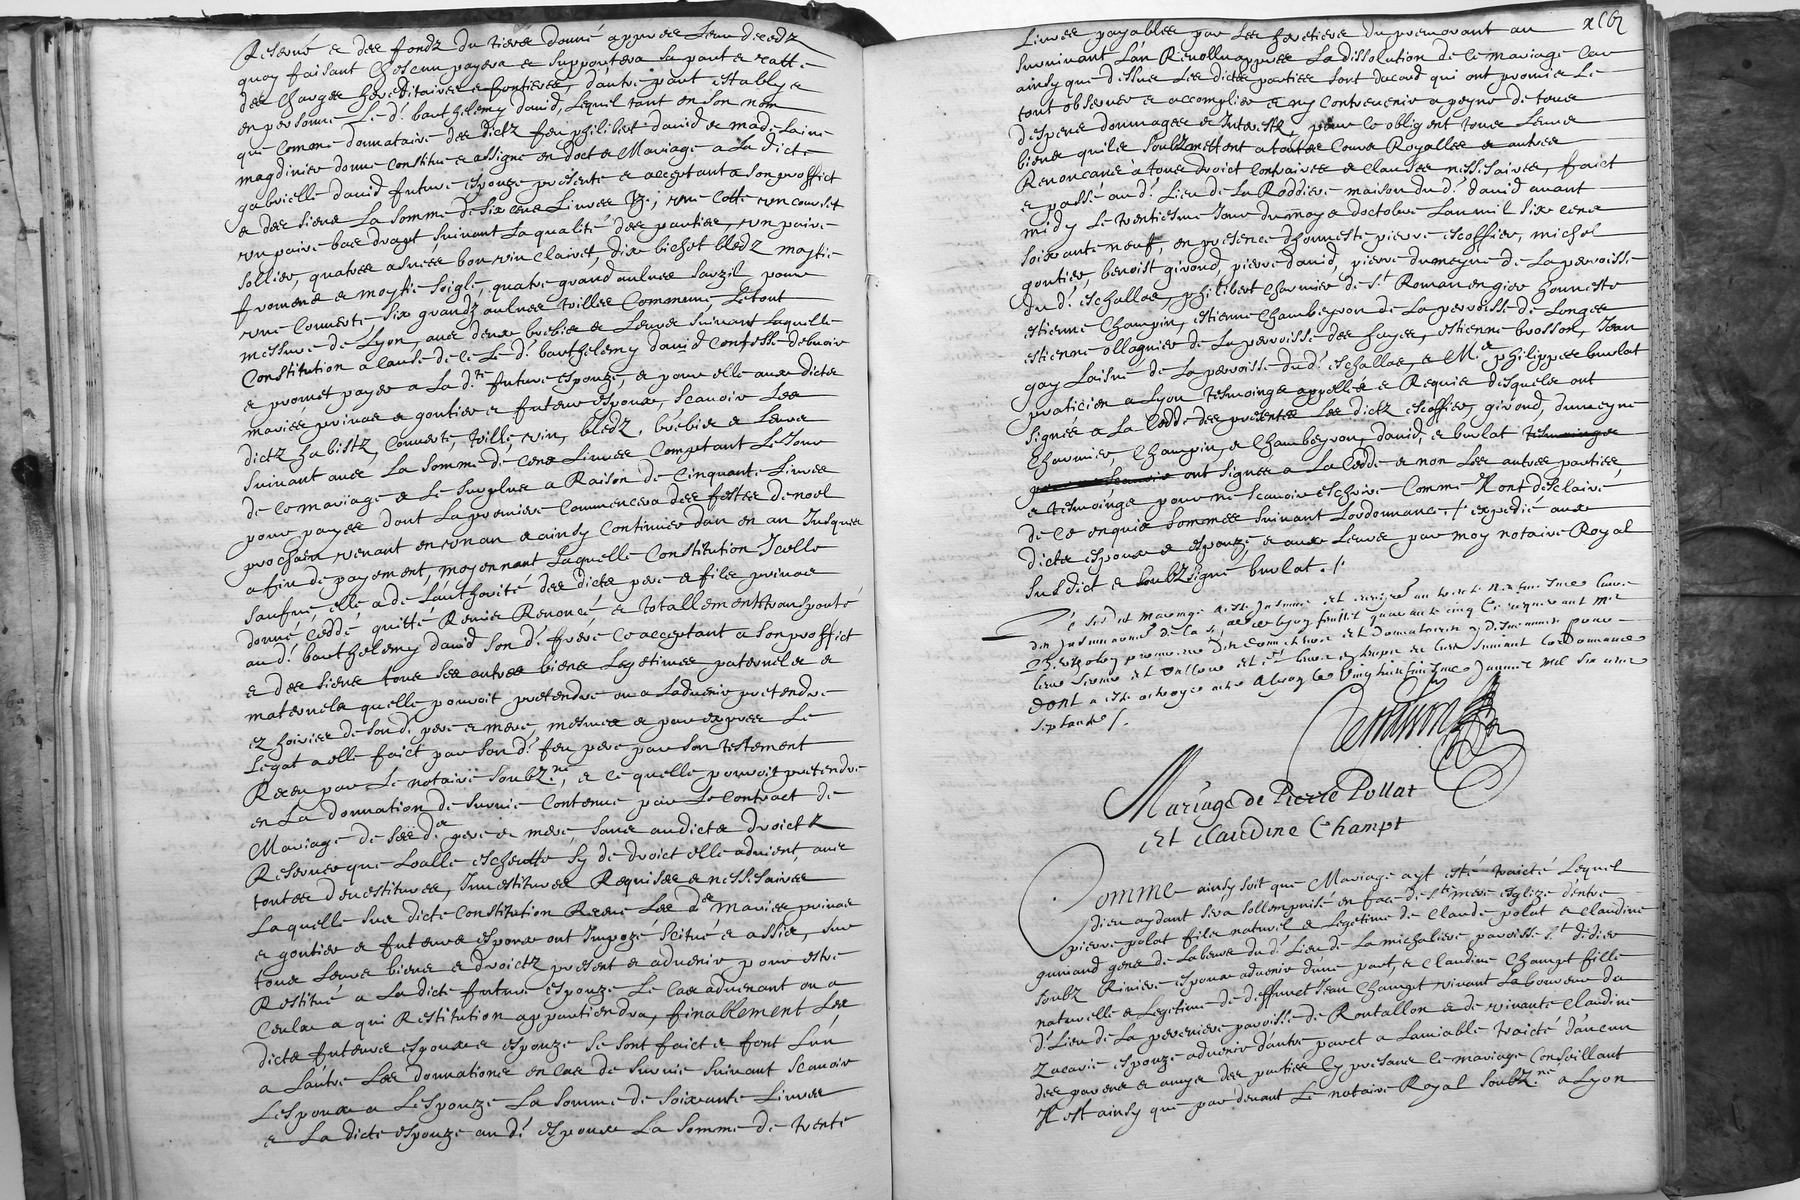 Reservé & des fondz du tiers donné appres leur decedz
quoy faisant chescun payera & supportera sa part & ratte
des charges hereditaires & fontieres, d'autre part estably &
en personne le d. barthelemy david, lequel tant en son nom
que comme donnataire des dictz feu philibert david & madelaine
magdinier donne constitue & assigne en doct & Mariage a la dicte
gabrielle david future espouze presente & acceptant a son proffict
& des siens la somme de six cens livres tz; une cotte un courset
un paire bas drapt suivant la qualité des parties, un paire
sollier, quatres asnees bon vin clairet, dix bichet bledz moytie
froment & moytie soigle, quatre grand aulnes sarzil pour
une couverte, six grandz aulnes toilles commune le tout
messure de Lyon, avec deux brebis & leurs suivant laquelle
Constitution a cause de ce le d. barthelemy david confesse debvoir
& promet payer a la d.te future espouze, & pour elle aux dictz
mariés & goutier & futeur espoux, scavoir les
dictz habistz, couverte, toille, vin, bledz, brebis & leurs
suivant avec la somme de cens livres comptant le jour
de ce mariage & le surplus a Raison de cinquante livres
pour payes dont la premiere commencera des festes de noel
prochain venant en un an & ainsy continuer dan en an jusques
a fin de payement, moyennant laquelle constitution Icelle
future, elle a de l'authorité des dictz pere & filz
donné ceddé quitté Remis Renoncé & totallement transporté
au d. barthelemy david son d. frere ce acceptant a son proffict
& des siens tous ses autres biens legetimes paternelz &
maternelz quelle pouvoit pretendre ou a l'advenir pretendre
ez hoiries de son d. pere & mere, mesmes & par expres le
Legat a elle faict par son d. feu pere par son testement
Receu par le notaire soubz.né, & ce quelle pouvoit pretendre
en la donnation de survie contenue par le contract de
Mariage de ses d. pere & mere, sans audictz droictz
Reserver que loalle escheutte sy de droict elle advient, avec
touttes devestitures, Investitures Requises & nessesaires
Laquelle sus dicte Constitution Receue les d. maries
& goutier & futeurs espoux ont Impozé scitué & assis, sur
tous leurs biens & droictz present & advenir pour estre
Restitué a la dicte future espouze le cas advenant ou a
ceulx a qui Restitution appartiendra, finablement les
dictz futeurs espoux & espouze se sont faict & font l'un
a l'autre les donnations en cas de survie suivant scavoir
L'espoux a l'espouze la somme de soixante livres
& la dicte espouze au d. espoux la somme de trente
Livres payables par les heretiers du premourant au
survivant l'an Revollu appres la dissolution de ce mariage car
ainsy que dessus les dictes parties sont dacord qui ont promis le
tout observer & accomplir & ny contrevenir a peyne de tous
despens dommages & Interestz, pour ce obligent tous leurs
biens quilz soubzmettent a toutes cours Royalles & autres
Renoncans a tous droict contraires & clauses nessesaires, faict
& passé au d. lieu de la Roddiere maison du d. david avant
midy le ventiesme jour du moys d'octobre l'an mil six cens
soixante neuf, en presence dhonneste pierre escoffier, michel
goutier, benoist girond, pierre david, pierre dumeyne de la parroisse
du d. eschallas, philibert charmier de s.t Roman en gier honneste
estienne champin, estienne chambeyron de la parroisse de longes
estienne ollagnier de la parroisse des hayes, estienne brosson, Jean
gay laisné de la parroisse du d. eschallas, & M.e philippes burlat
praticien a Lyon tesmoings appellés & Requis desquelz ont
signés a la cedde des presentes les dictz escoffier, girond, dumeyne
Charmier Champin, & Chambeyron, david, & burlat
ont signes a la cedde & non les autres parties
& tesmoings pour ne scavoir eschrire comme Il ont desclairé
de ce enquis sommes suivant lordonnance. / expedié aux
dictz espoux & espouze, & aux leurs par moy notaire Royal
susdict & soubzsigné burlat. /.
dont a esté octroyé acte A Lyon le Vingt huictiesme Janvier mil six cens
septante /.
Mariage de Pierre Pollat
Et Claudine Champt
Comme ainsy soit que Mariage ayt esté traicté lequel
dieu aydant sera sollempnisé en face de s.te mere esglize d'entre
pierre polat filz naturel & legetime de claude polat & claudine
guinand gens de labeur du d. lieu de la michaliere, paroisse s.t didier
soubz Riviere espoux advenir d'une part, & claudine Champt fille
naturelle & legetime de deffunct Jean Champt vivant laboureur du
d. lieu de la perveniere paroisse de Rontallon & de vivante claudine
zacarie espouze advenir d'autre part a lamiable traicté d'aucun
des parens & amys des parties Cy presans le mariage conseillant
Il est ainsy que par devant le notaire Royal soubz.né a Lyon